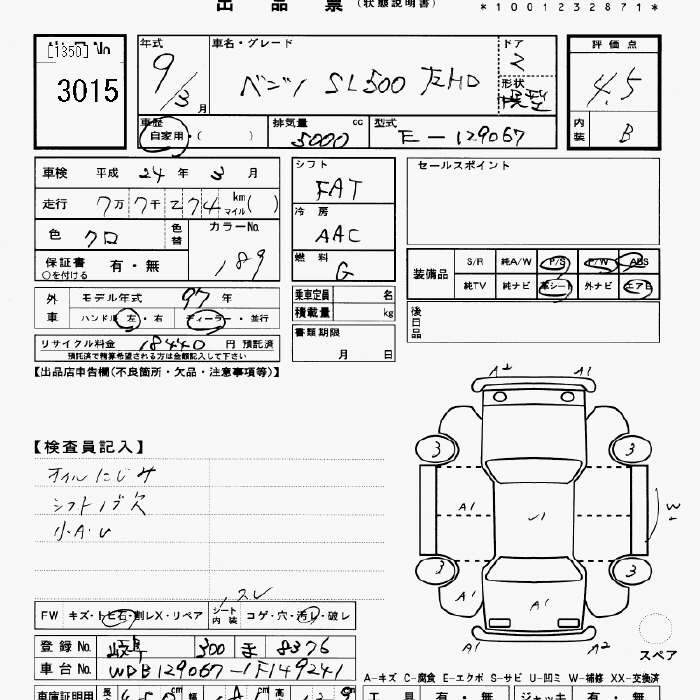 出 品 票 (状態説明書)
*1001232871*
[1350] No
3015
年式
9/3 月
車名・グレード
ベンツ SL500 左HD
ドア
2
形状
評価点
4.5
内装 B
車歴
自家用・( )
排気量 cc
5000
型式
E-129067
車検 平成 24 年 3 月
走行 7万 7千 2 7 4 km マイル( )
色 クロ
色替
カラーNo.
189
保証書 有・無
○を付ける
シフト
FAT
冷房
AAC
燃料
G
セールスポイント
装備品 S/R 純A/W P/S P/W ABS
純TV 純ナビ 革シート 外ナビ エアB
外車 モデル年式 97 年
ハンドル 左・右 ディーラー・並行
乗車定員 名
積載量 kg
後日品
リサイクル料金 18440 円 預託済
預託済で精算希望される方は金額記入して下さい
書類期限
月 日
【出品店申告欄(不良箇所・欠品・注意事項等)】
A2 A1
【検査員記入】
オイルにじみ
シフトノブ欠
小A・U
3 3
A1 √1 W
3 3
A1 A1
A1 A2
スペア
スレ
FW キズ・トビ石・割レX・リペア シート内装 コゲ・穴・汚レ・破レ
登録No. 岐阜 300 8376
車台No. WDB129067-1F149241
A-キズ C-腐食 E-エクボ S-サビ U-凹ミ W-補修 XX-交換済
車庫証明用
工具 有・無 ジャッキ 有・無